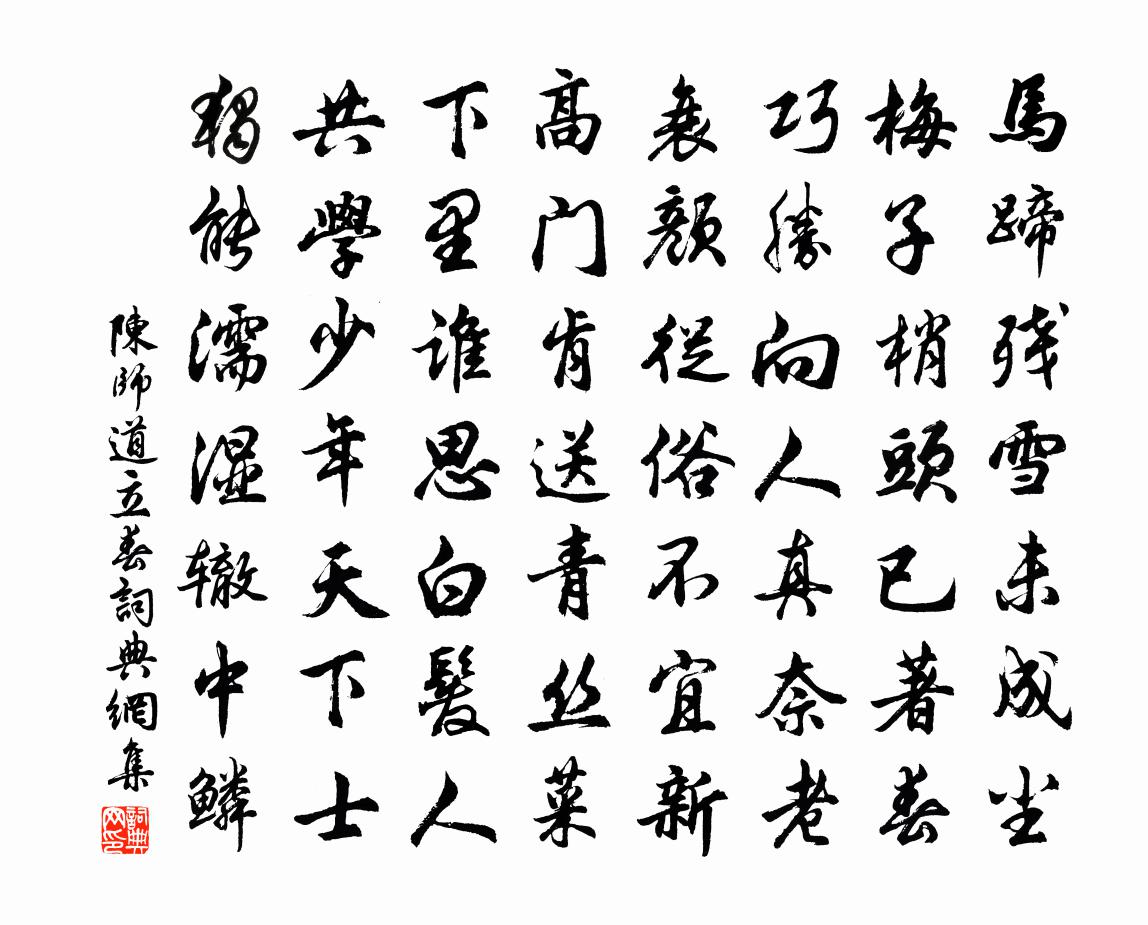 馬蹄残雪未成尘
梅子梢頭已著春
巧勝向人真奈老
衰颜從俗不宜新
高门肯送青丝菜
下里谁思白髮人
共學少年天下士
獨能濡湿辙中鳞
陳師道立春詞典網集
詞典网印